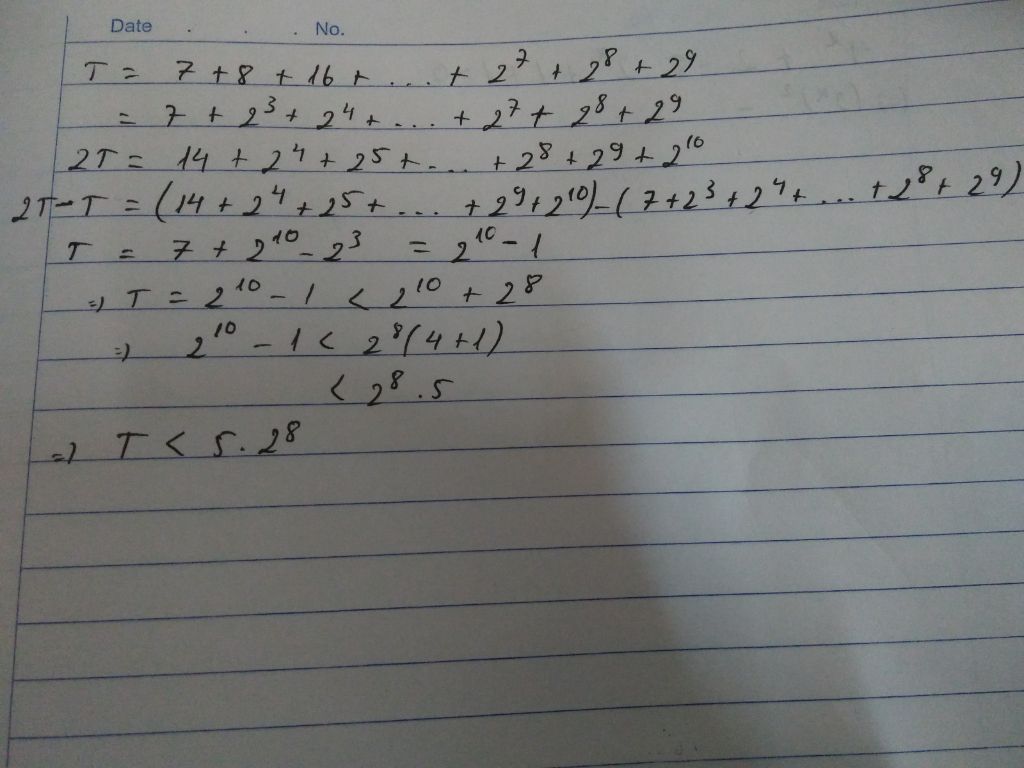 Date . . . No.
T = 7 + 8 + 16 + .... + 2⁷ + 2⁸ + 2⁹
= 7 + 2³ + 2⁴ + .... + 2⁷ + 2⁸ + 2⁹
2T = 14 + 2⁴ + 2⁵ + .... + 2⁸ + 2⁹ + 2¹⁰
2T - T = (14 + 2⁴ + 2⁵ + .... + 2⁹ + 2¹⁰) - (7 + 2³ + 2⁴ + .... + 2⁸ + 2⁹)
T = 7 + 2¹⁰ - 2³ = 2¹⁰ - 1
=> T = 2¹⁰ - 1 < 2¹⁰ + 2⁸
=> 2¹⁰ - 1 < 2⁸(4 + 1)
< 2⁸ . 5
=> T < 5 . 2⁸